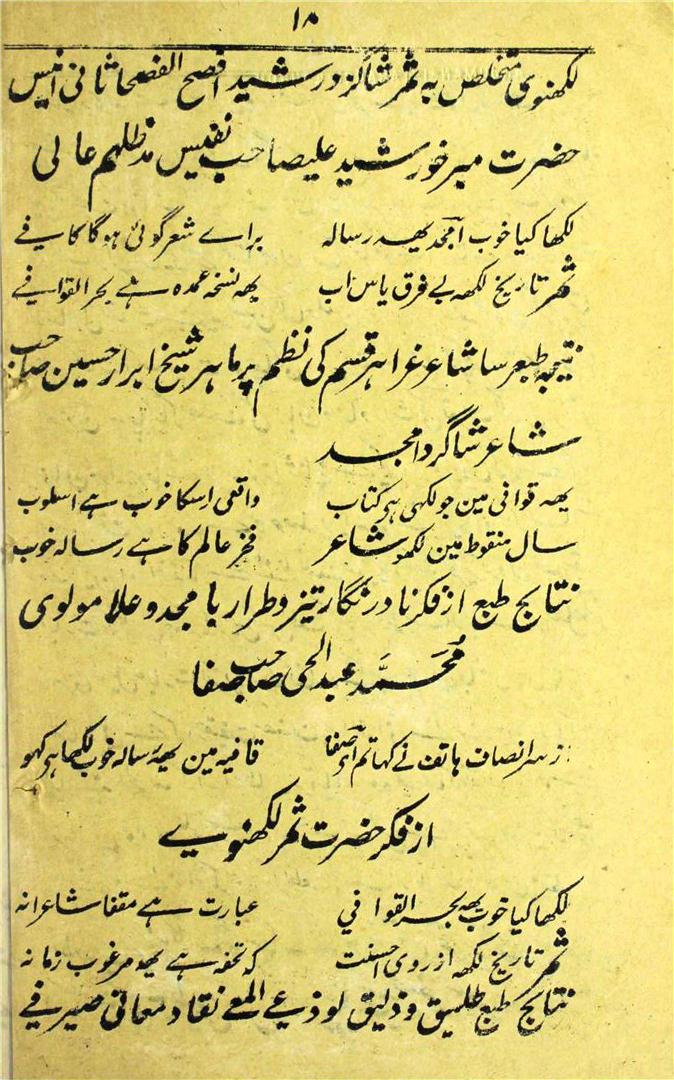 ۱۸
لکھنوی متخلص بہ ثمر شاگرد رشید افصح الفصحا ثانی انیس
حضرت میر خورشید علیصاحب نفیس مد ظلہم عالی
لکھا کیا خوب امجد یھہ رسالہ براے شعر گوئی ہوگا کافے
ثمر تاریخ لکھہ بے فرق یاس اب یھہ نسخہ عمدہ ہے بحر القوافے
نتیجہ طبع رسا شاعر غرا ہر قسم کی نظم پر ماہر شیخ ابرار حسین صاحب
شاعر شاگرد امجد
یھہ قوافی مین جو لکھی ہر کتاب واقعی اسکا خوب ہے اسلوب
سال منقوط مین لکھو شاعر فخر عالم کا ہے رسالہ خوب
نتائج طبع از فکر نادر نگار تیز و طرار با مجد و علا مولوی
محمد عبد الحی صاحب صفا
از سر انصاف ہاتف نے کہا تم اے صفا قافیہ مین یھہ رسالہ خوب لکھا ہر کہو
از فکر حضرت ثمر لکھنوے
لکھا کیا خوب یھہ بحر القوافی عبارت ہے مقفا شاعرانہ
ثمر تاریخ لکھہ از روی احسنت کہ تحفہ ہے یھہ مرغوب زمانہ
نتائج طبع طلیق و ذلیق لوذعے المعے نقاد معانی صیرفے